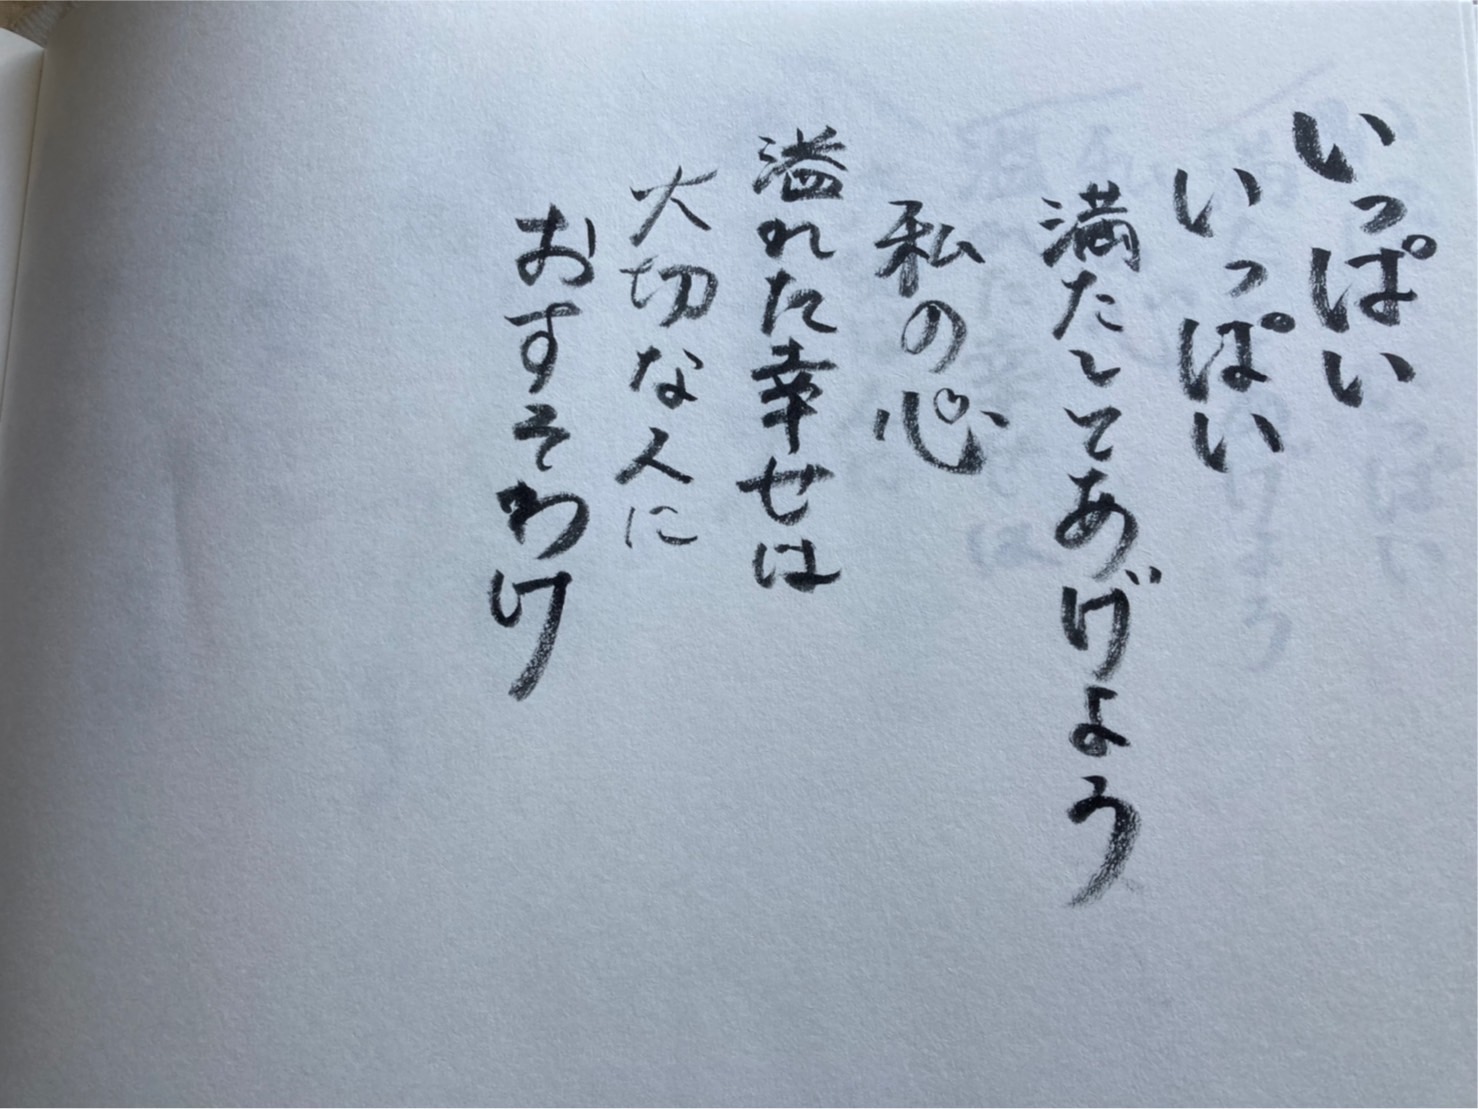 いっぱい
いっぱい
満たしてあげよう
私の心
溢れた幸せは
大切な人に
おすそわけ